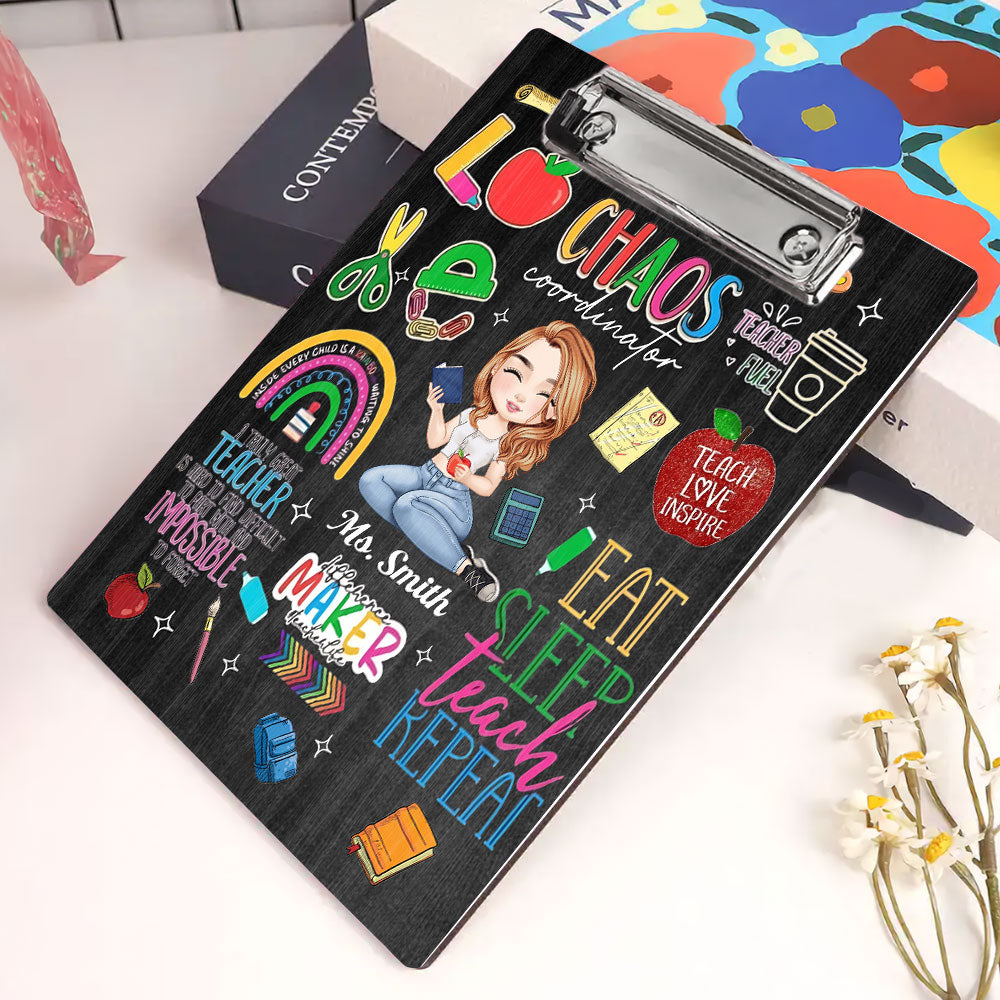 MA
CONTEMP
C
er
LO
CHAOS
coordinator
TEACHER
FUEL
INSIDE EVERY CHILD IS A RAINBO WAITING TO SHINE
A TRULY GREAT
TEACHER
IS HARD TO FIND DIFFICULT
TO PART WITH AND
IMPOSSIBLE
TO FORGET
TEACH
LOVE
INSPIRE
Ms. Smith
difference
MAKER
teacherlife
EAT
SLEEP
teach
REPEAT